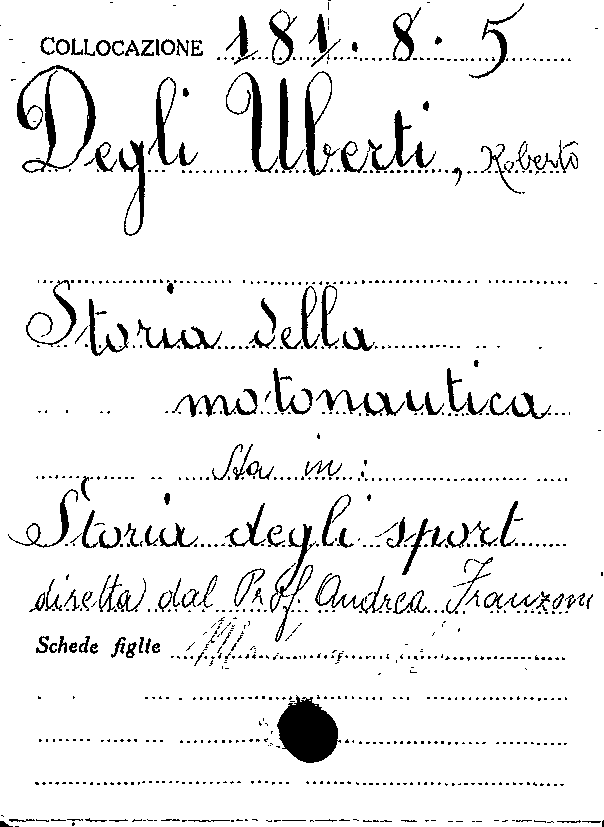 COLLOCAZIONE 181. 8. 5
Degli Uberti, Roberto
Storia della
motonautica
Sta in:
Storia degli sport
diretta dal Prof. Andrea Franzoni
Schede figlie